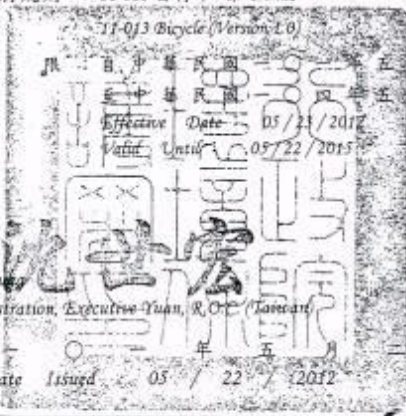 11-013 Bicycle (Version 1.0)
限 自 中 華 民 國 一 ○ 一 年 五
至 中 華 民 國 一 ○ 四 年 五
Effective Date 05 / 23 / 2012
Valid Until 05 / 22 / 2015
沈世宏
stration, Executive Yuan, R.O.C (Taiwan)
○ 年 五 月 二
ate Issued : 05 / 22 / 2012